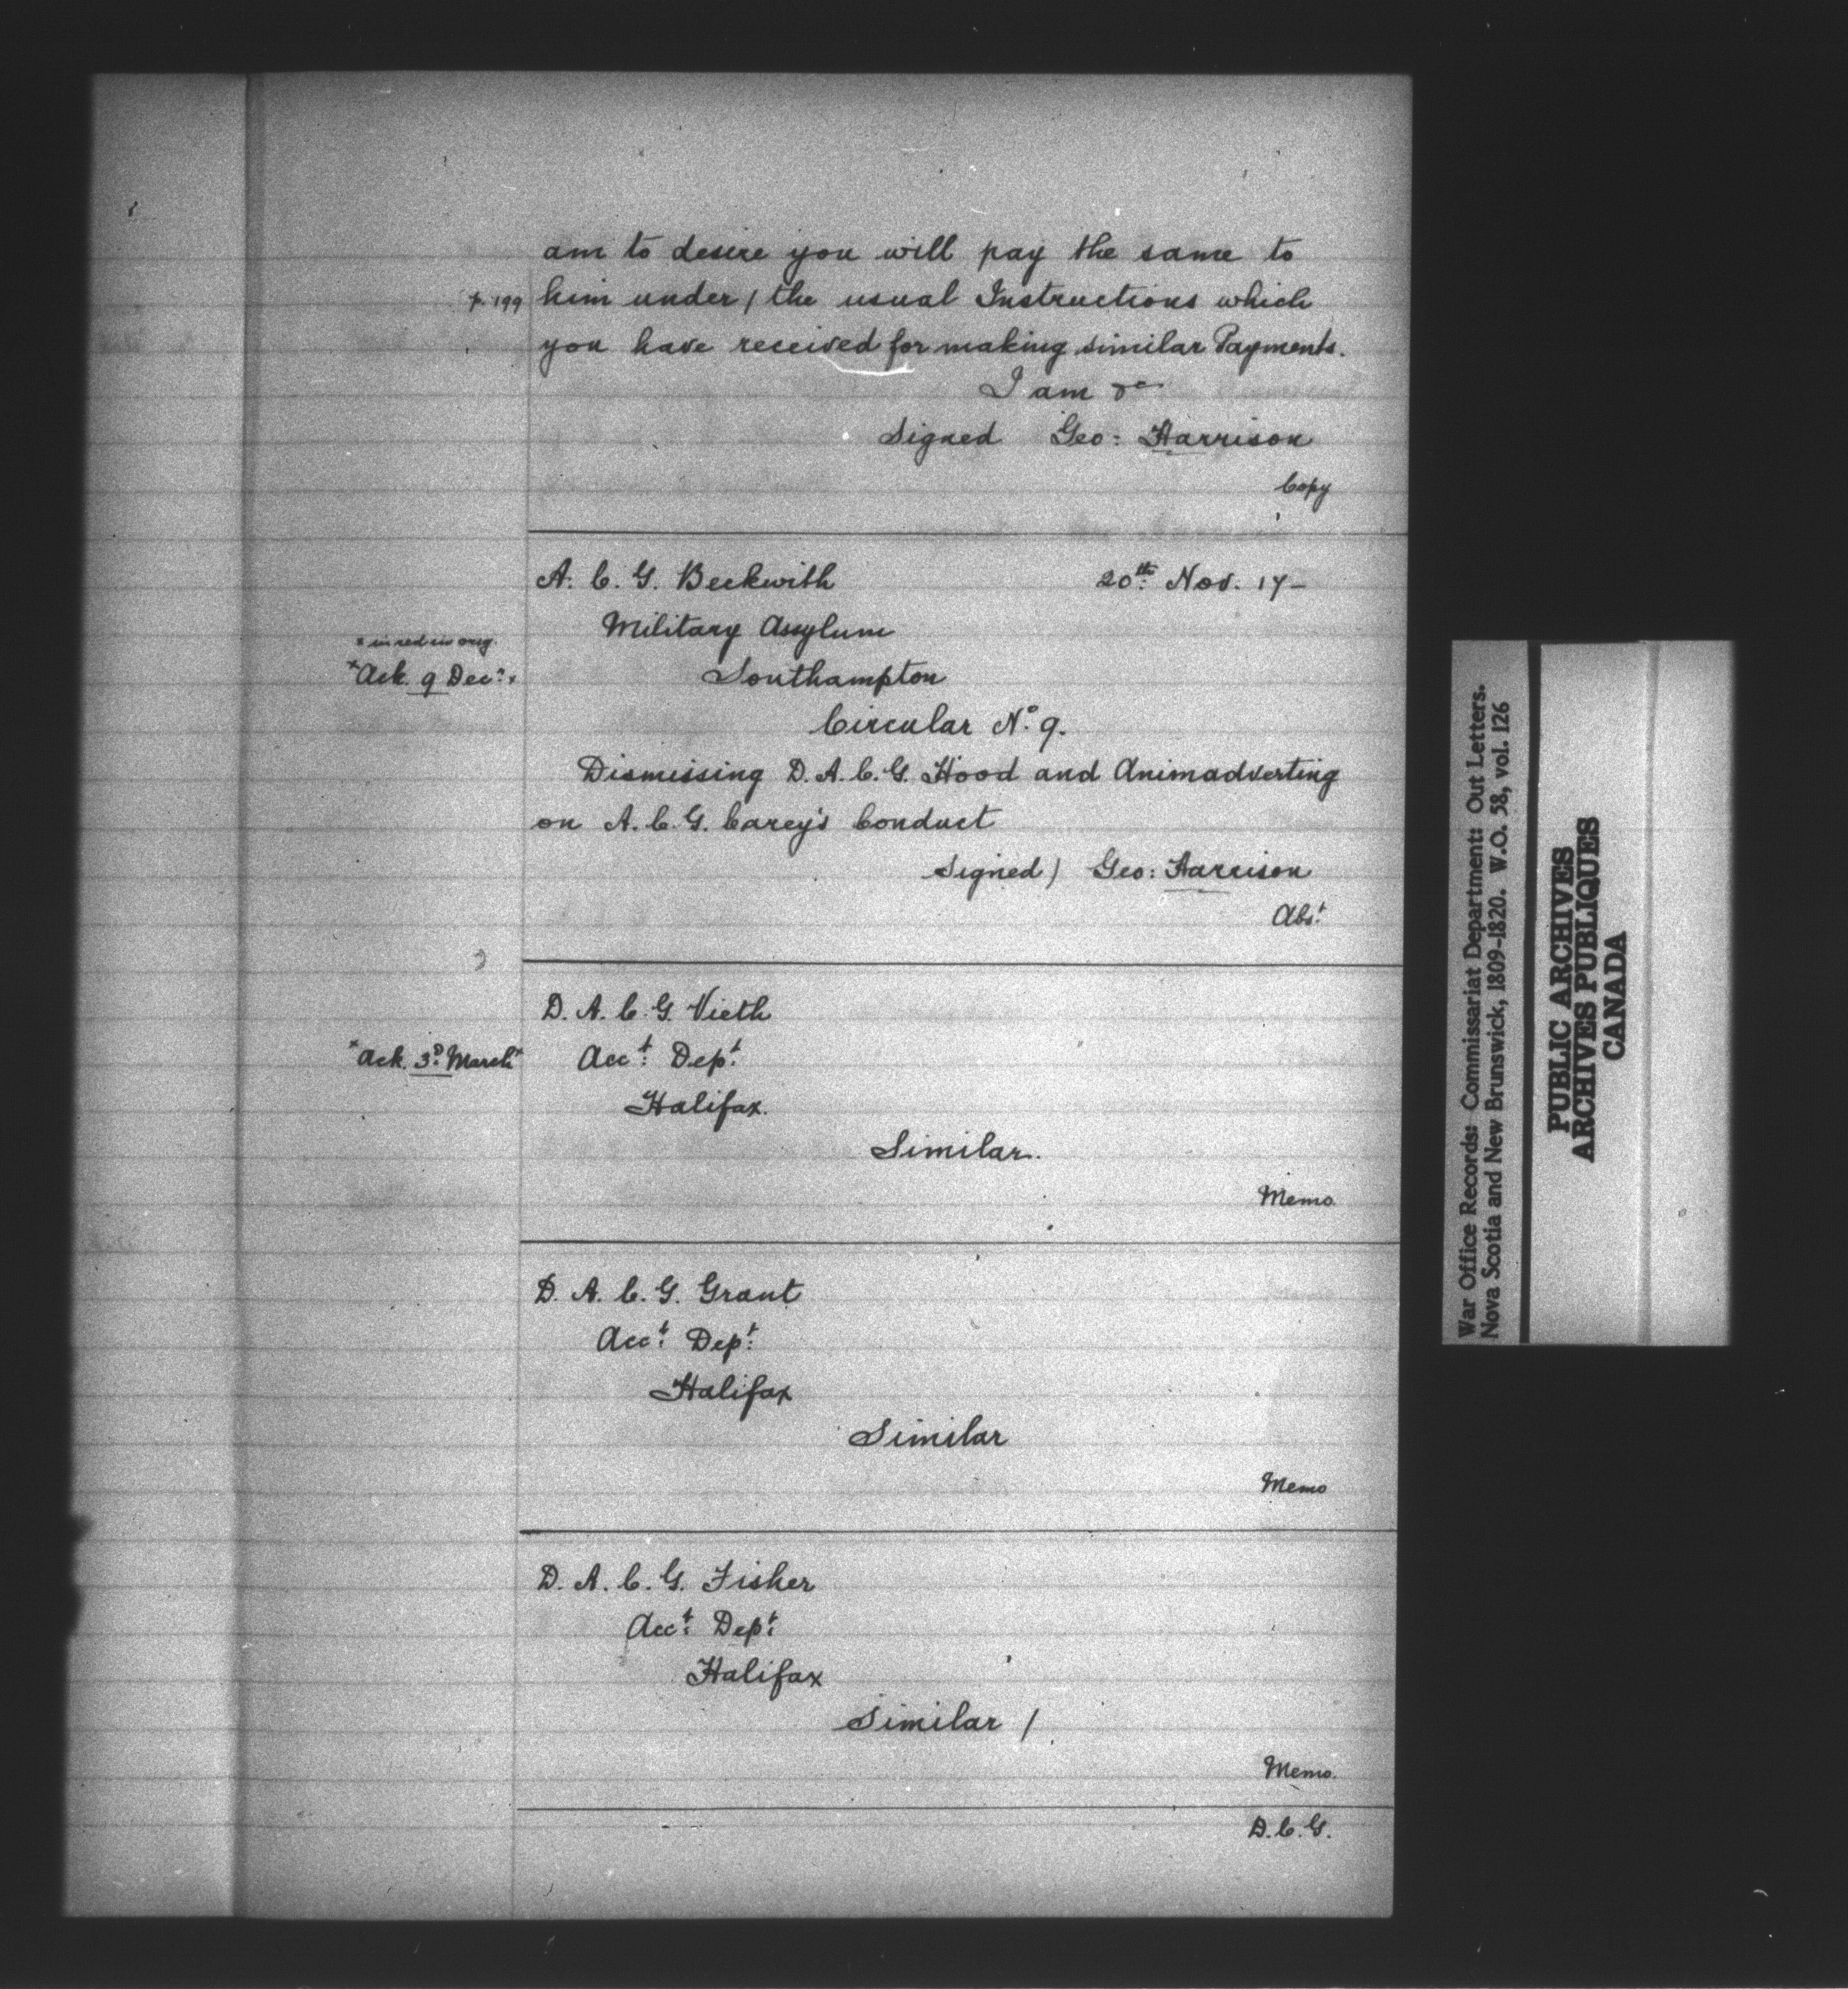 am to desire you will pay the same to
p. 199 him under / the usual Instructions which
you have received for making similar Payments.
I am &c
Signed Geo: Harrison
Copy
A. C. G. Beckwith 20th Nov. 17-
Military Assylum
x in red in orig.
xAck. 9 Decr. x Southampton
Circular No. 9.
Dismissing D. A. C. G. Hood and Animadverting
on A. C. G. Carey's Conduct
Signed) Geo: Harrison
Abst
D. A. C. G. Vieth
xAck. 3d. Marchx Acct. Dept.
Halifax.
Similar.
Memo
D. A. C. G. Grant
Acct. Dept.
Halifax
Similar
Memo
D. A. C. G. Fisher
Acct. Dept.
Halifax
Similar /
Memo.
D. C. G.
War Office Records: Commissariat Department: Out Letters.
Nova Scotia and New Brunswick, 1809-1820. W.O. 58, vol. 126
PUBLIC ARCHIVES
ARCHIVES PUBLIQUES
CANADA